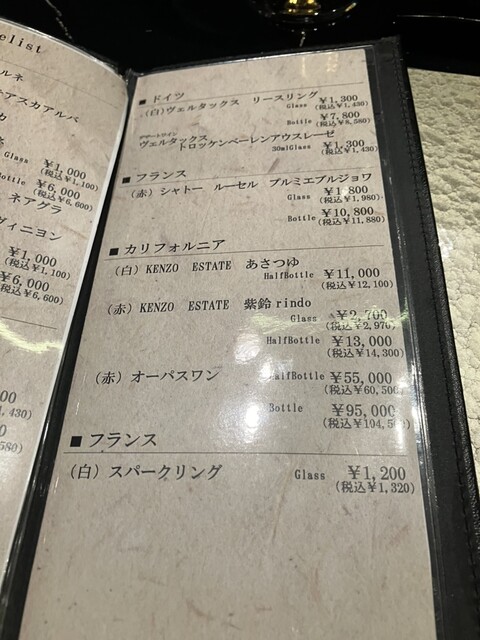 elist
ルネ
Glass ¥1,000
(税込¥1,100)
Bottle ¥6,000
(税込¥6,600)
ネアグラ
ヴィニヨン
¥1,000
(税込¥1,100)
¥6,000
(税込¥6,600)
■ ドイツ
(白)ヴェルタックス リースリング
Glass ¥1,300
(税込¥1,430)
Bottle ¥7,800
(税込¥8,580)
デザートワイン
ヴェルタックス
トロッケンベーレンアウスレーゼ
30mlGlass ¥1,300
(税込¥1,430)
■ フランス
(赤)シャトー ルーセル プルミエブルジョワ
Glass ¥1,800
(税込¥1,980)
Bottle ¥10,800
(税込¥11,880)
■ カリフォルニア
(白)KENZO ESTATE あさつゆ
HalfBottle ¥11,000
(税込¥12,100)
(赤)KENZO ESTATE 紫鈴rindo
Glass ¥2,700
(税込¥2,970)
HalfBottle ¥13,000
(税込¥14,300)
(赤)オーパスワン
HalfBottle ¥55,000
(税込¥60,500
Bottle ¥95,000
(税込¥104,50
■ フランス
(白)スパークリング
Glass ¥1,200
(税込¥1,320)